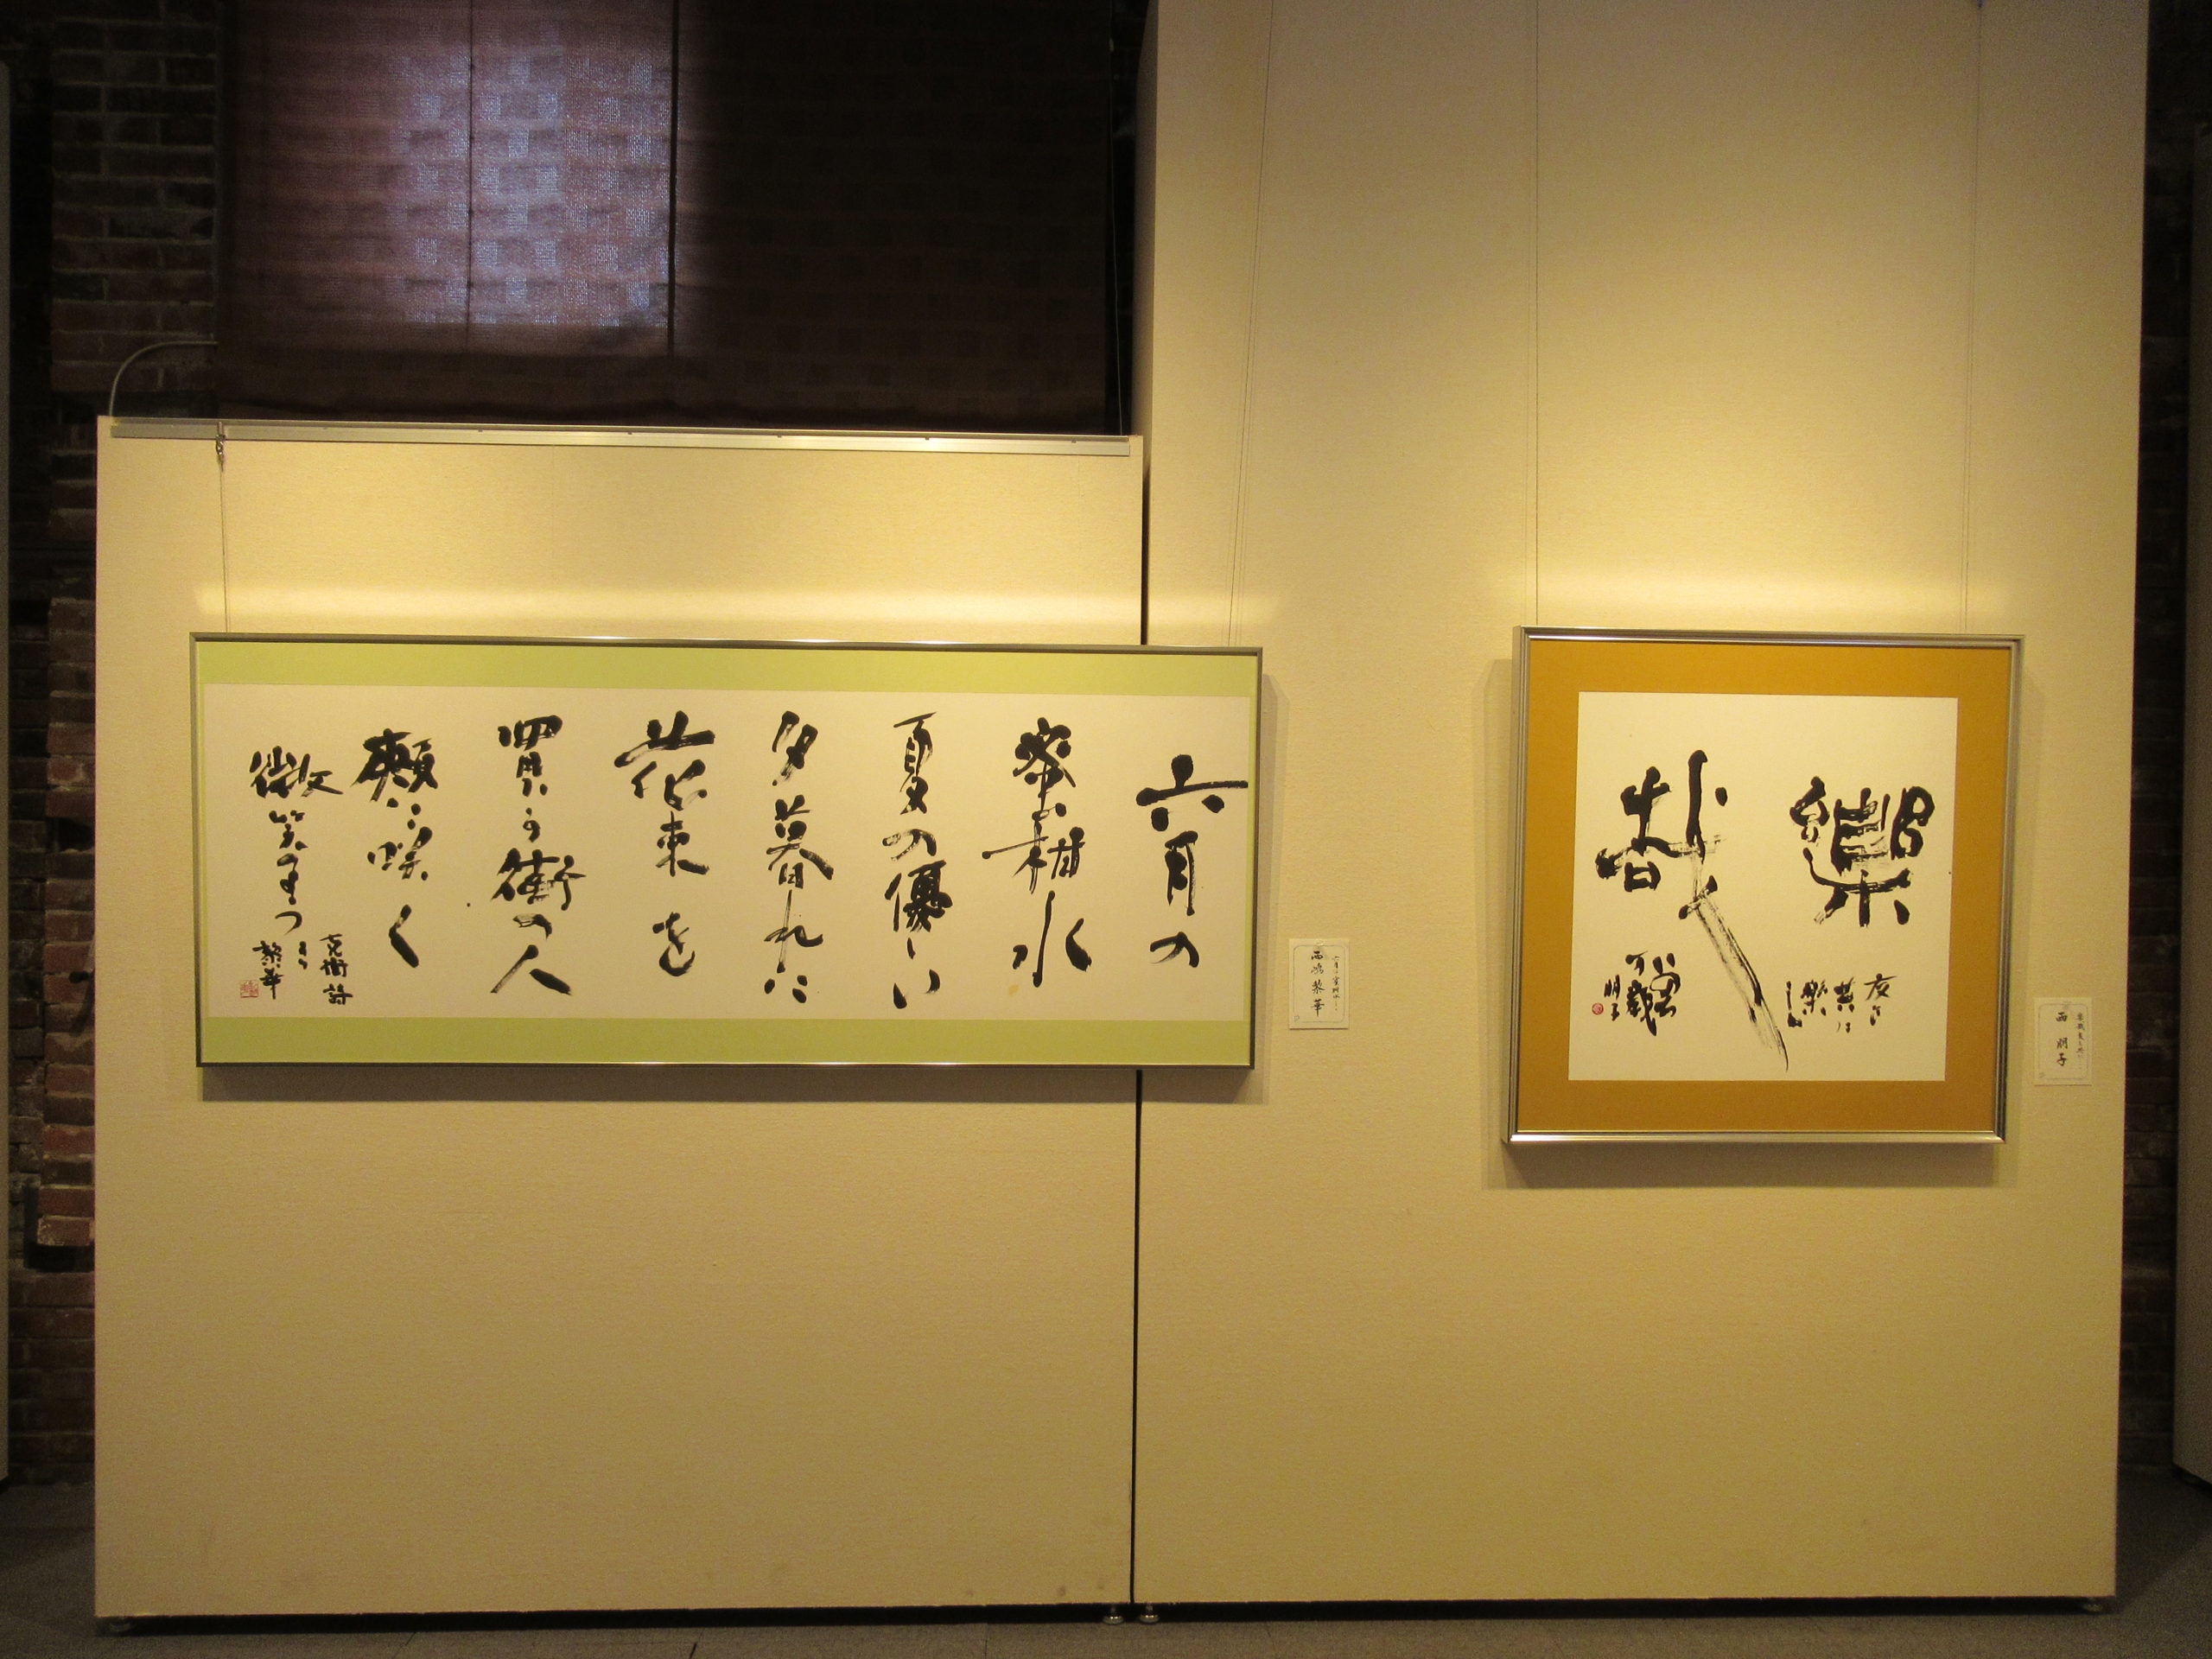 六月の
蜜柑水
夏の優しい
夕暮れに
花束を
買う街の人
頬に咲く
微笑のまつ
克衛詩
より
黎華
西嶋黎華
樂哉
友と
共に
樂
し
明子
西明子